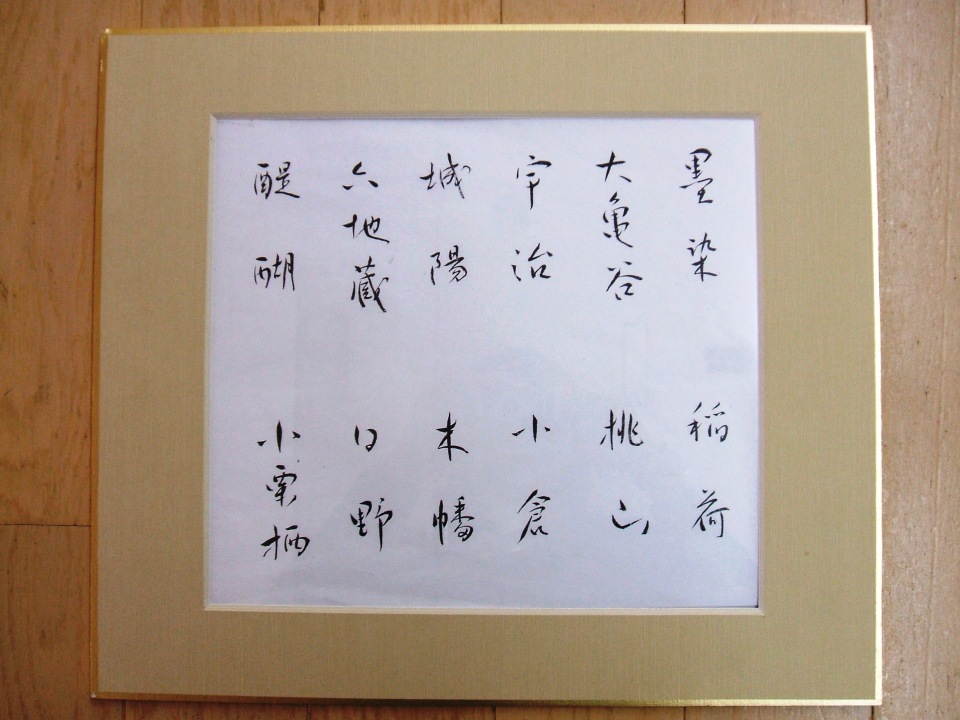 墨染
稲荷
大亀谷
桃山
宇治
小倉
城陽
木幡
六地蔵
日野
醍醐
小栗栖